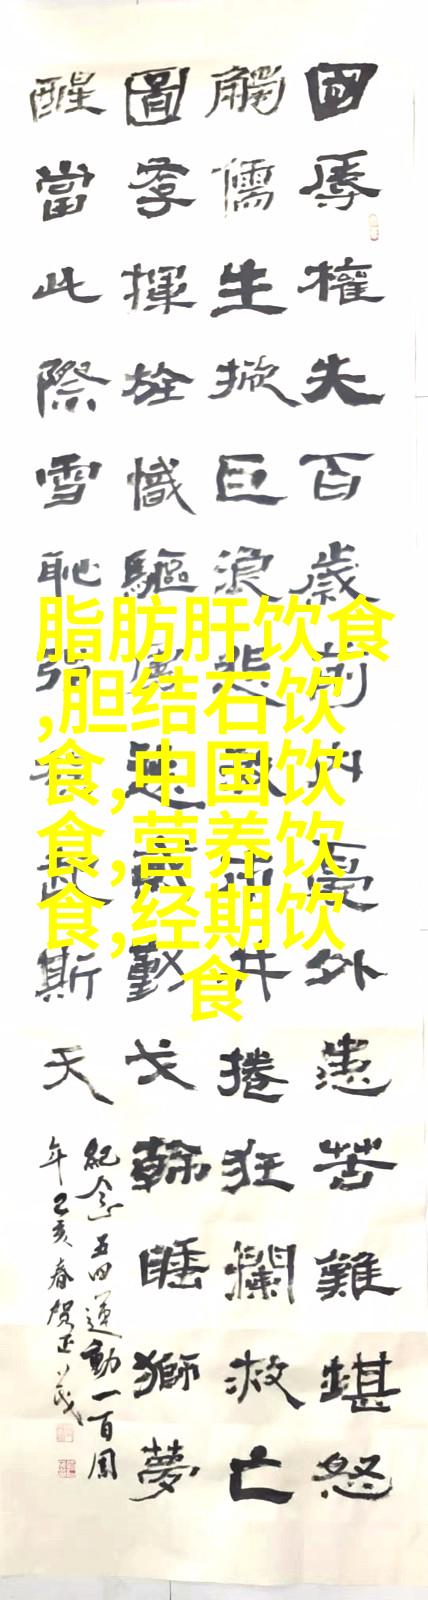 國辱權失百歲前内憂外患苦難堪怒
觸儒生掀巨浪悲歌市井捲狂瀾救亡
圖存揮旌幟驅虜逐動戈睡獅夢
醒當此際雪恥強武斯天
紀念五四運動一百周
年己亥春賀正
脂肪肝饮食
,胆结石饮
食,中国饮
食,营养饮
食,经期饮
食